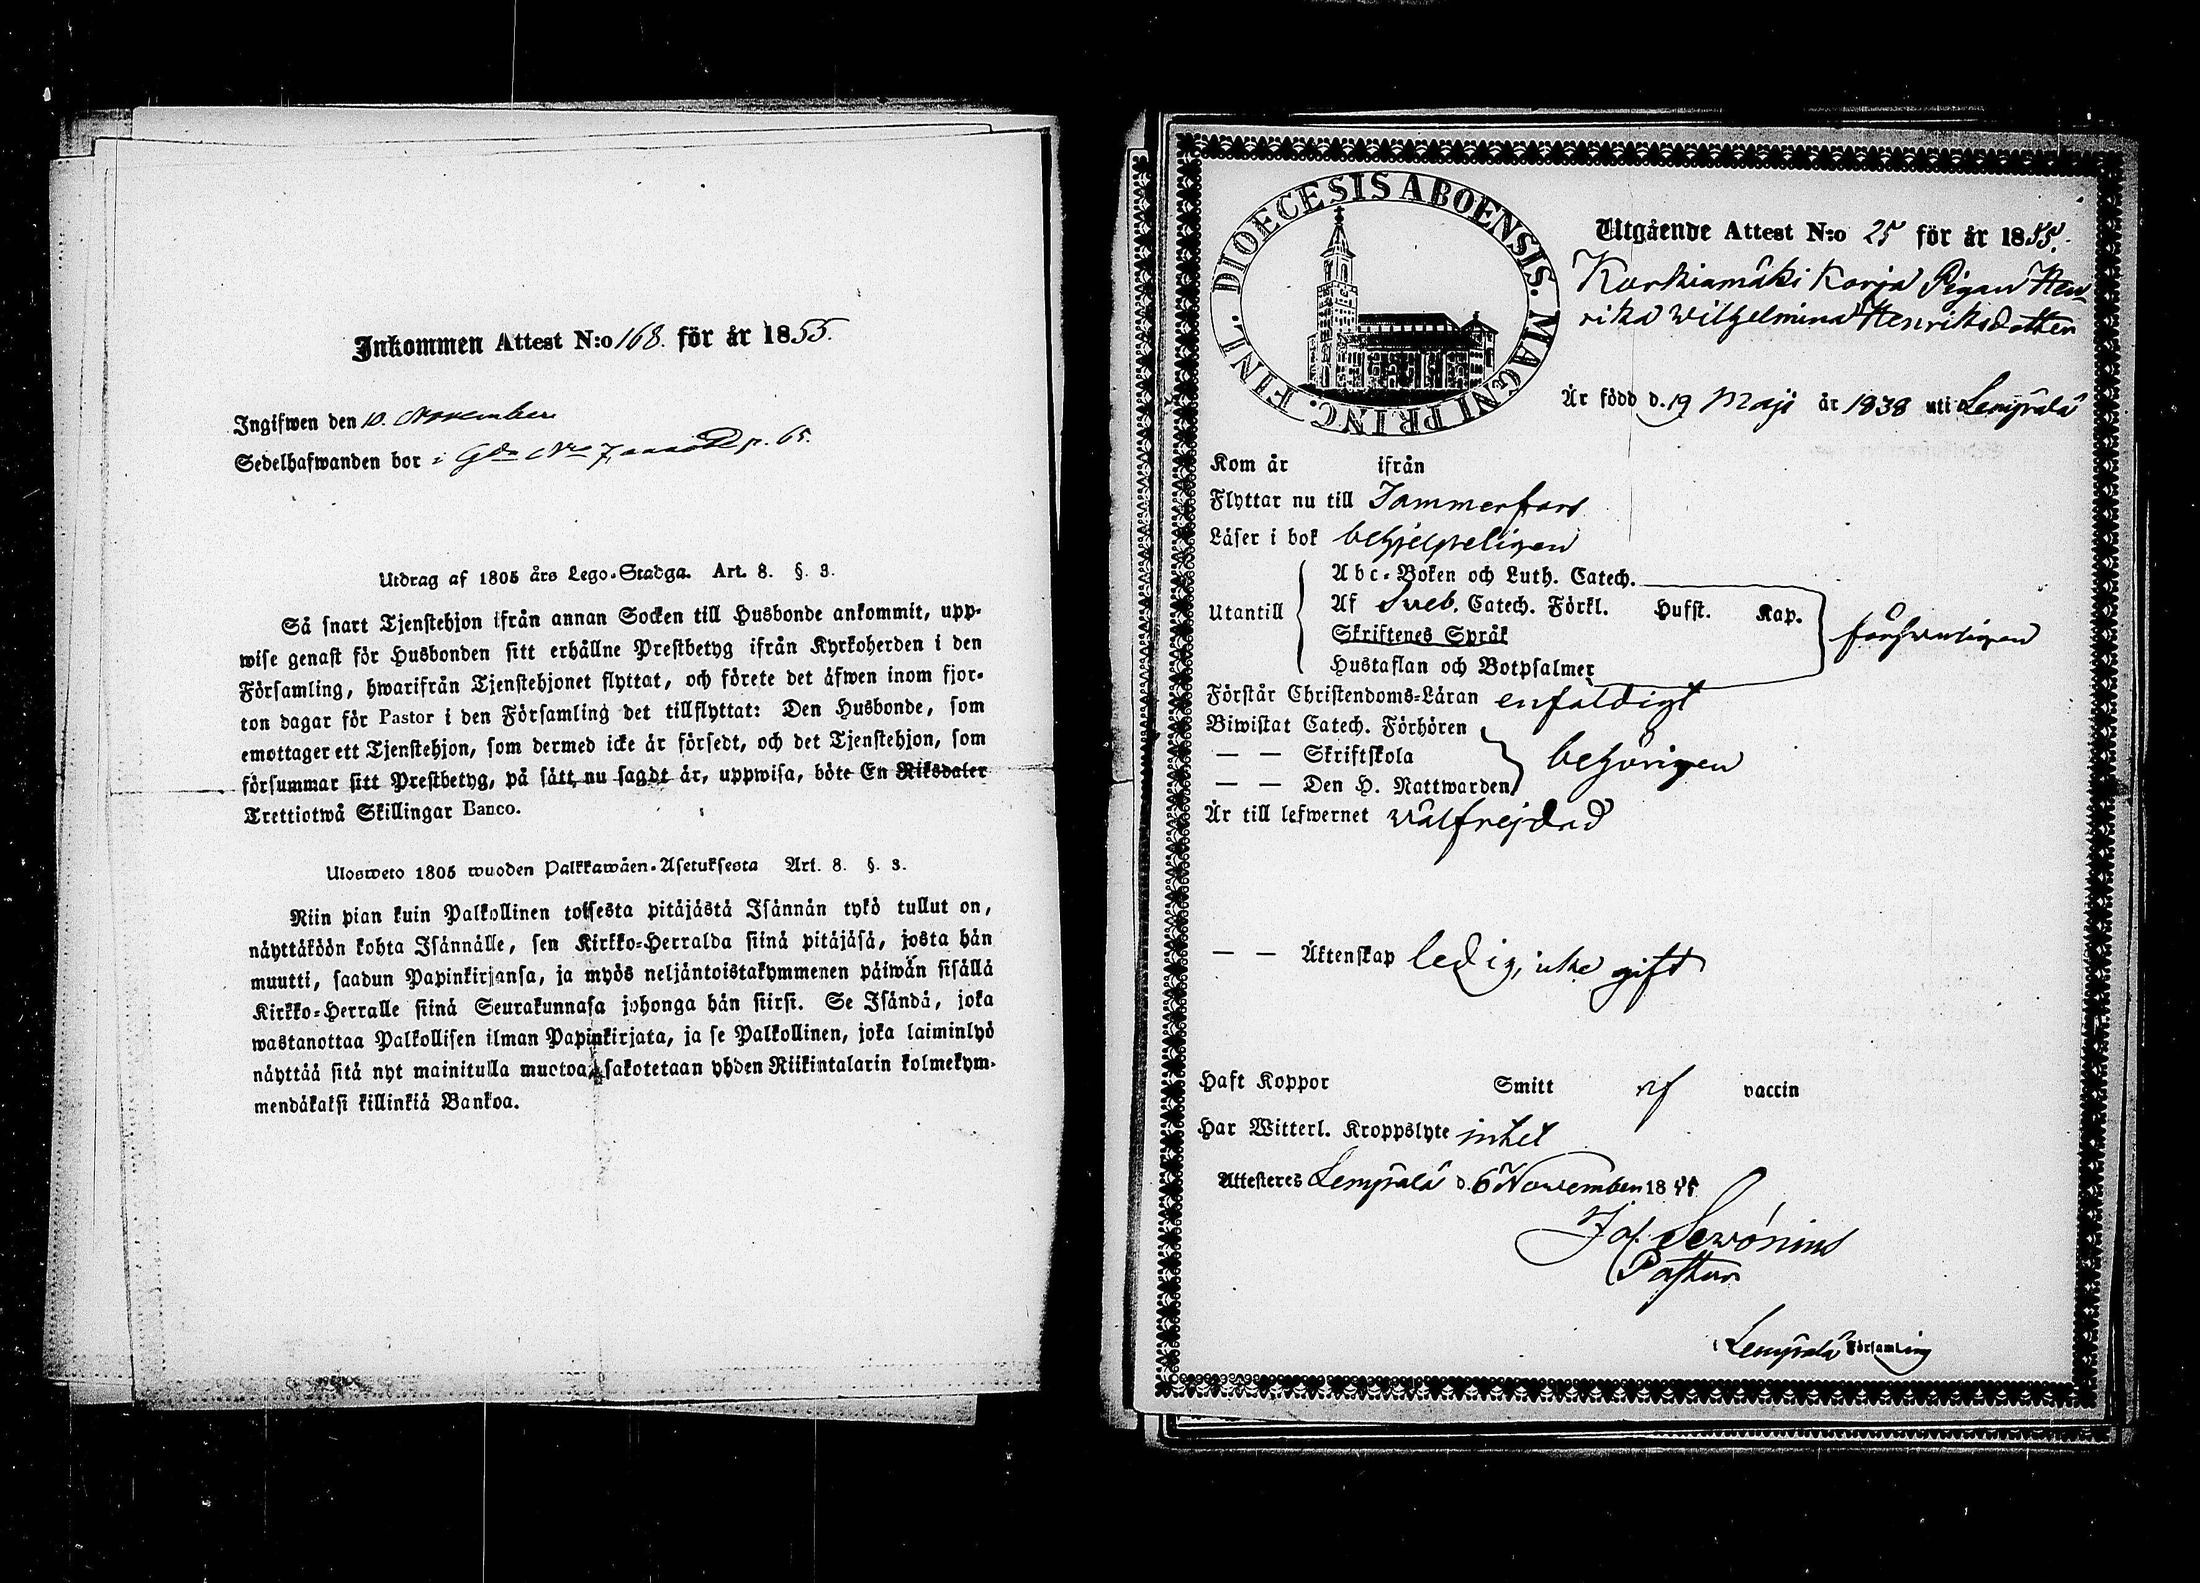 Inkommen Attest N:o 168. för år 1855.
Ingifwen den 10. November
Sedelhafwanden bor i Gdn No 7 p. 65.
Utdrag af 1805 års Lego-Stadga. Art. 8. §. 3.
Så snart Tjenstehjon ifrån annan Socken till Husbonde ankommit, upp-
wise genast för Husbonden sitt erhållne Prestbetyg ifrån Kyrkoherden i den
Församling, hwarifrån Tjenstehjonet flyttat, och förete det äfwen inom fjor-
ton dagar för Pastor i den Församling det tillflyttat: Den Husbonde, som
emottager ett Tjenstehjon, som dermed icke är försedt, och det Tjenstehjon, som
försummar sitt Prestbetyg, på sätt nu sagdt är, uppwisa, böte En Riksdaler
Trettiotwå Skillingar Banco.
Ulosweto 1805 wuoden Palkkawäen-Asetuksesta Art. 8. §. 3.
Niin pian kuin Palkollinen toisesta pitäjästä Isännän tykö tullut on,
näyttäköön kohta Isännälle, sen Kirkko-Herralda siinä pitäjäsä, josta hän
muutti, saadun Papinkirjansa, ja myös neljäntoistakymmenen päiwän sisällä
Kirkko-Herralle siinä Seurakunnasa johonga hän siirsi. Se Isändä, joka
wastanottaa Palkollisen ilman Papinkirjata, ja se Palkollinen, joka laiminlyö
näyttää sitä nyt mainitulla muotoa, sakotetaan yhden Riikintalarin kolmekym-
mendäkaksi killinkiä Bankoa.
DIOECESIS ABOENSIS. MAGNI PRINC. FINL.
Utgående Attest N:o 25 för år 1855.
Korkiamäki Korja Pigan Hen-
rika Wilhelmina Henriksdotter
Är född d. 19 Maji år 1838 uti Lempälä
Kom år ifrån
Flyttar nu till Tammerfors
Läser i bok behjelpeligen
Utantill
Abc-Boken och Luth. Catech.
Af Sveb. Catech. Förkl. Hufst. Kap.
Skriftenes Språk
Hustaflan och Botpsalmer
försvarligen
Förstår Christendoms-Läran enfaldigt
Biwistat Catech. Förhören
— — Skriftskola
— — Den H. Nattwarden
behörigen
Är till lefwernet wälfrejdad
— — Äktenskap ledig, icke gift
Haft Koppor Smitt af vaccin
Har Witterl. Kroppslyte intet
Attesteres Lempälä d. 6 November 1855
Jos. Servónius
Pastor
i Lempälä Församling